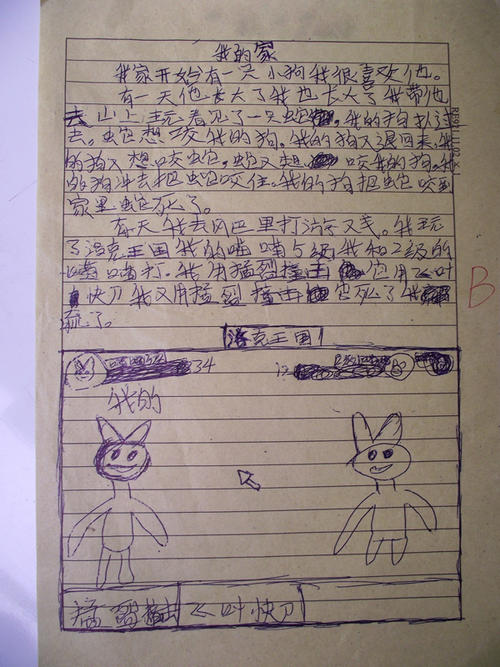 我的家
我家开始有一天小狗我很喜欢他。
有一天他长大了我也长大了我带他
去山上玩看见了一只蛇。我的狗扑过
去。蛇想咬我的狗。我的狗又退回来,我
的狗又想咬蛇。蛇又想咬我的狗。我
的狗冲去把蛇咬住。我的狗把蛇咬到
家里蛇死了。
有天我去风巴里打游戏。我玩
了洛克王国我的喵喵5级我和2级的
喵喵打。我用猛烈撞击他用飞叶
快刀我又用猛烈撞击它死了我
赢了。
B
洛克王国
34
我的
猛烈撞击 飞叶快刀